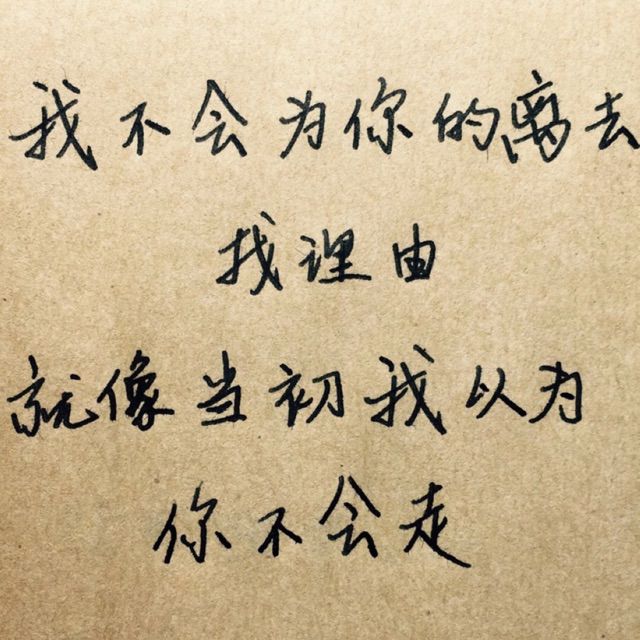 我不会为你的离去
找理由
就像当初我以为
你不会走